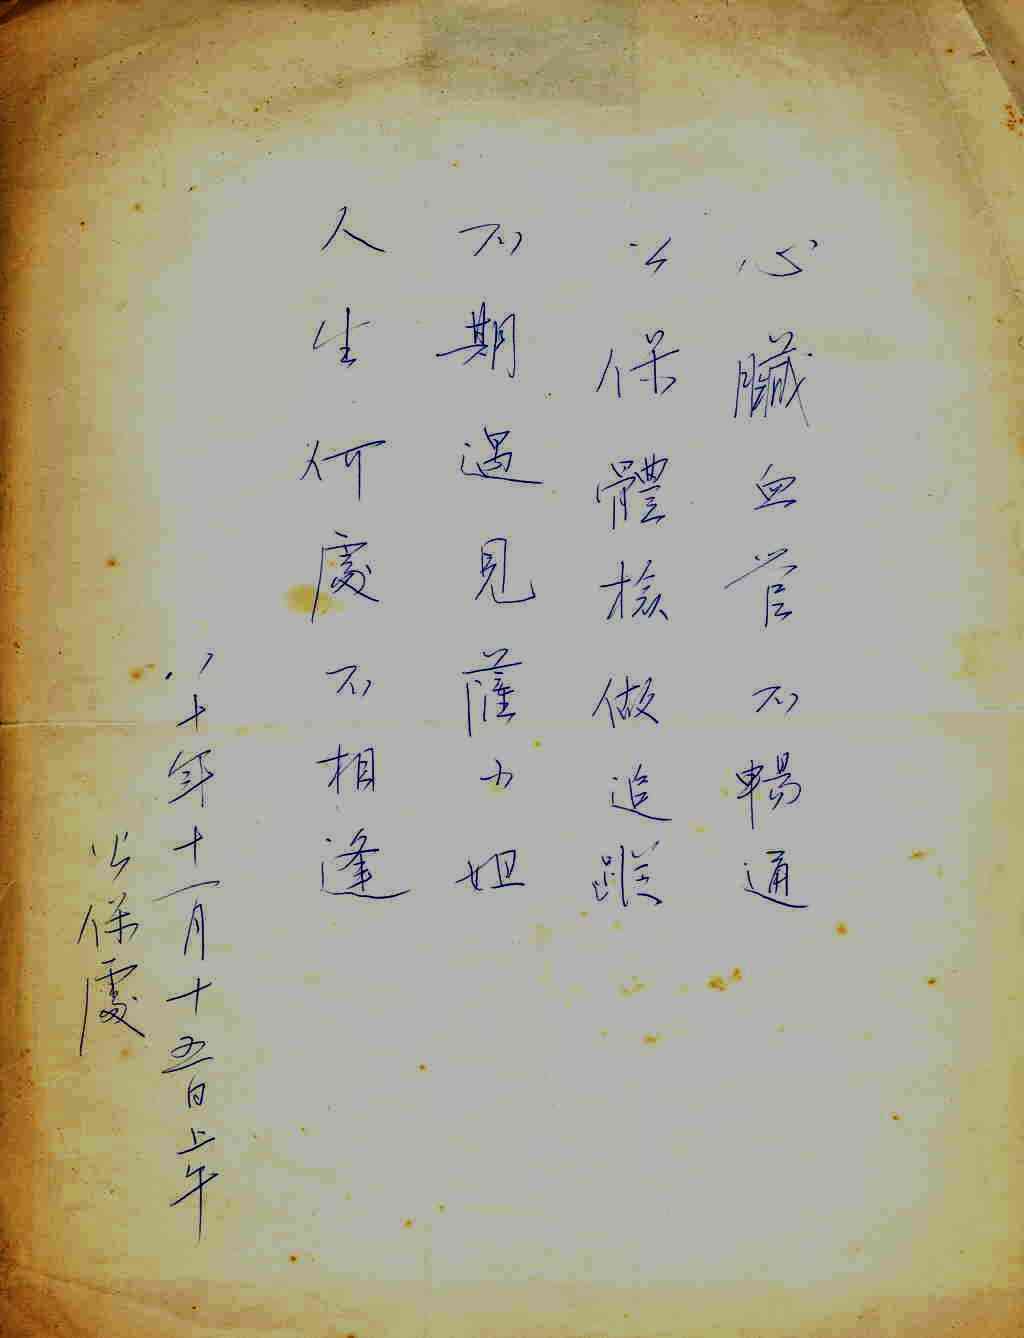 心臟血管不暢通
公保體檢做追蹤
不期遇見薩小姐
人生何處不相逢
八十年十一月十五日上午
公保處